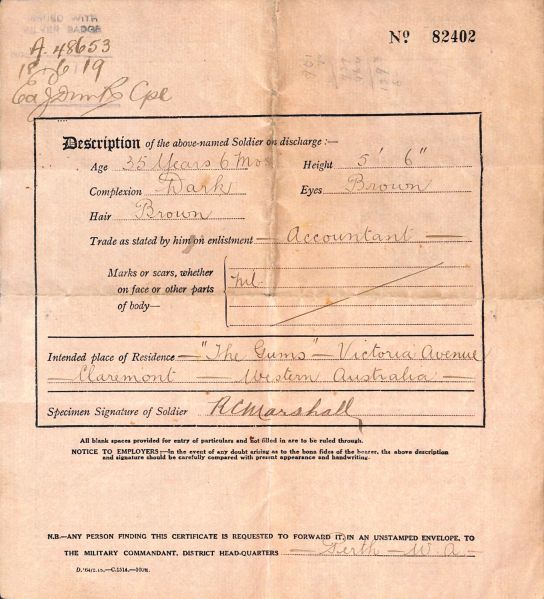 ISSUED WITH
SILVER BADGE
Nº 82402
A. 48653
18/6/19
Cpl
Description of the above-named Soldier on discharge:—
Age 35 Years 6 Mos Height 5' 6"
Complexion Dark Eyes Brown
Hair Brown
Trade as stated by him on enlistment — Accountant —
Marks or scars, whether
on face or other parts
of body—
Nil
Intended place of Residence — "The Gums" — Victoria Avenue
— Claremont — Western Australia —
Specimen Signature of Soldier R C Marshall
All blank spaces provided for entry of particulars and not filled in are to be ruled through.
NOTICE TO EMPLOYERS—In the event of any doubt arising as to the bona fides of the bearer, the above description
and signature should be carefully compared with present appearance and handwriting.
N.B.—ANY PERSON FINDING THIS CERTIFICATE IS REQUESTED TO FORWARD IT, IN AN UNSTAMPED ENVELOPE, TO
THE MILITARY COMMANDANT, DISTRICT HEAD-QUARTERS — Perth — W.A. —